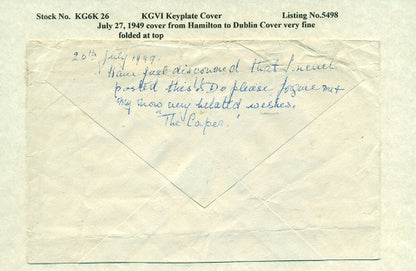 Stock No. KG6K 26 KGVI Keyplate Cover Listing No.5498
July 27, 1949 cover from Hamilton to Dublin Cover very fine
folded at top
20th July 1949
Have just discovered that I never
posted this! Do please forgive me +
my now very belated wishes.
"The Caper.'